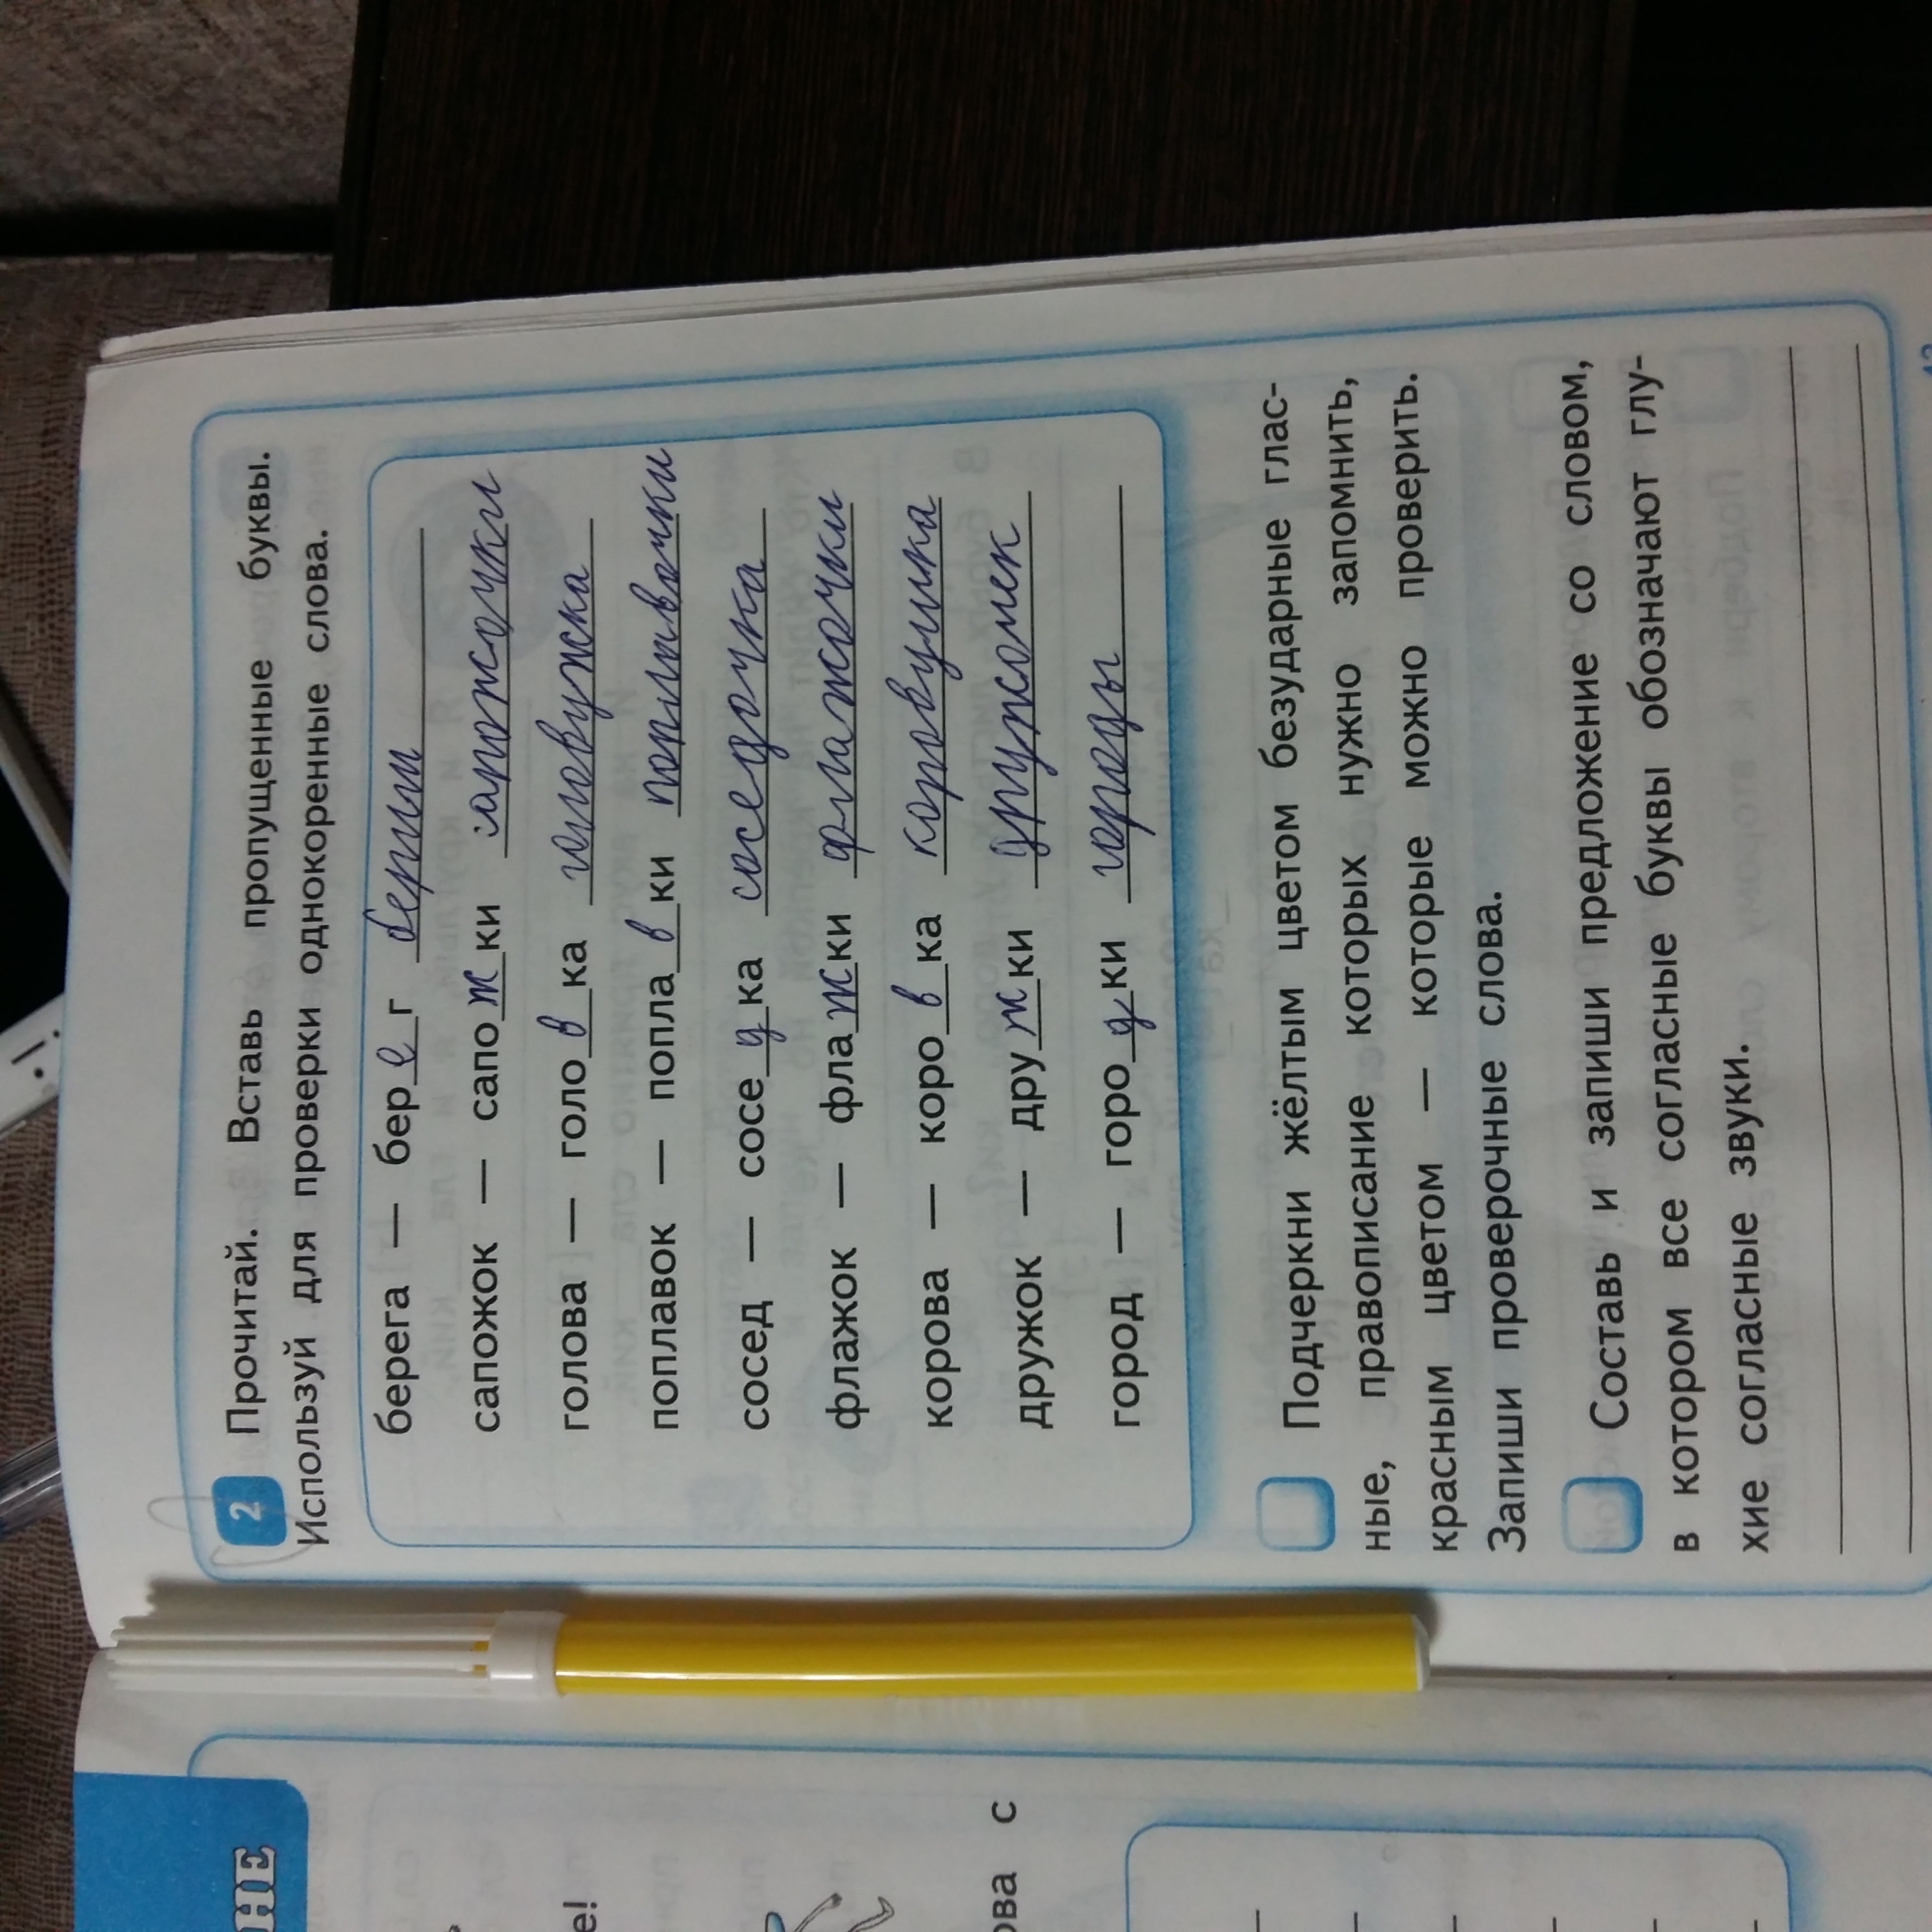 2 Прочитай. Вставь пропущенные буквы.
Используй для проверки однокоренные слова.
берега — берег
сапожок — сапожки сапожочки
голова — головка головушка
поплавок — поплавки поплавочки
сосед — соседка соседочка
флажок — флажки флажочки
корова — коровка коровушка
дружок — дружки дружочек
город — городки городы
Подчеркни жёлтым цветом безударные глас-
ные, правописание которых нужно запомнить,
красным цветом — которые можно проверить.
Запиши проверочные слова.
Составь и запиши предложение со словом,
в котором все согласные буквы обозначают глу-
хие согласные звуки.
НЕ
е!
ова с